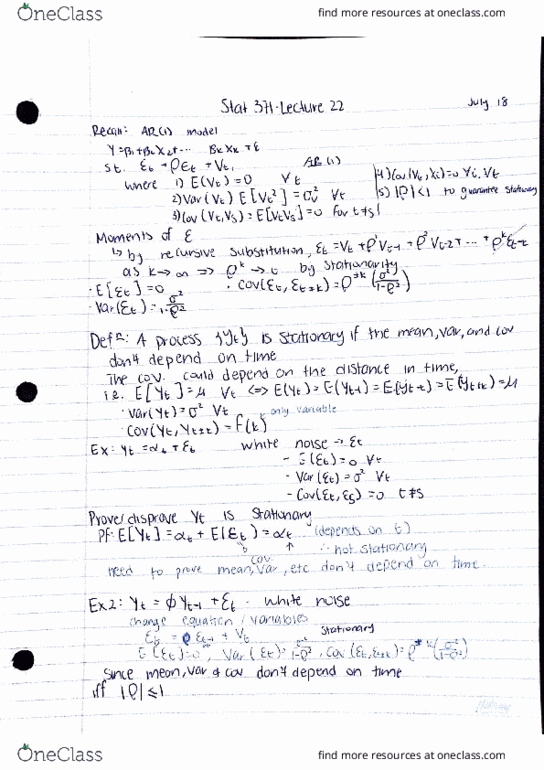 OneClass
find more resources at oneclass.com
Stat 371-Lecture 22 July 18
Recall: AR(1) model
Y=β₁+β₂X₂+... BₖXₖ+ε
s.t. εₜ = ρεₜ + Vₜ, AR(1)
where 1) E(Vₜ)=0 ∀t |4) Cov(Vₜ, Xᵢ)=0 ∀i, ∀t
2) Var(Vₜ) E[Vₜ²]=σᵥ² ∀t |5) |ρ|<1 to guarantee
3) Cov(Vₜ,Vₛ)=E[VₜVₛ]=0 for t≠s
Moments of ε
↳ by recursive substitution, εₜ=Vₜ+ρ'Vₜ₋₁+ρ²Vₜ₋₂+...+ρᵏεₜ₋ₖ
as k→∞ => ρᵏ→0 by stationarity
·E[εₜ]=0 ·Cov(εₜ, εₜ±ₖ)=ρ^±k(σ²/1-ρ²)
·Var(εₜ)=σ²/1-ρ²
Defⁿ: A process {yₜ} is stationary if the mean, var, and cov
don't depend on time
The cov. could depend on the distance in time,
i.e. E[Yₜ]=μ ∀t <=> E(Yₜ)=E(Yₜ₋₁)=E(Yₜ₋₂)=E(Yₜ₊ₖ)=μ
·Var(Yₜ)=σ² ∀t only variable
·Cov(Yₜ, Yₜ±ₖ)=f(k)
Ex: Yₜ=αₜ+εₜ white noise → εₜ
- E(εₜ)=0 ∀t
- Var(εₜ)=σ² ∀t
- Cov(εₜ, εₛ)=0 t≠s
Prove/disprove Yₜ is stationary
Pf: E[Yₜ]=αₜ+E(εₜ)=αₜ (depends on t)
∴ not stationary
cov
need to prove mean, var, etc don't depend on time.
Ex2: Yₜ=φYₜ₋₁+εₜ. white noise
change equation/variables
εₜ = ρεₜ₋₁ + Vₜ stationary
E(εₜ)=0, Var(εₜ)=σ²/1-ρ², Cov(εₜ,εₜ±ₖ)=ρ^k(σ²/1-ρ²)
since mean, var & cov don't depend on time
iff |ρ|<1
OneClass
find more resources at oneclass.com